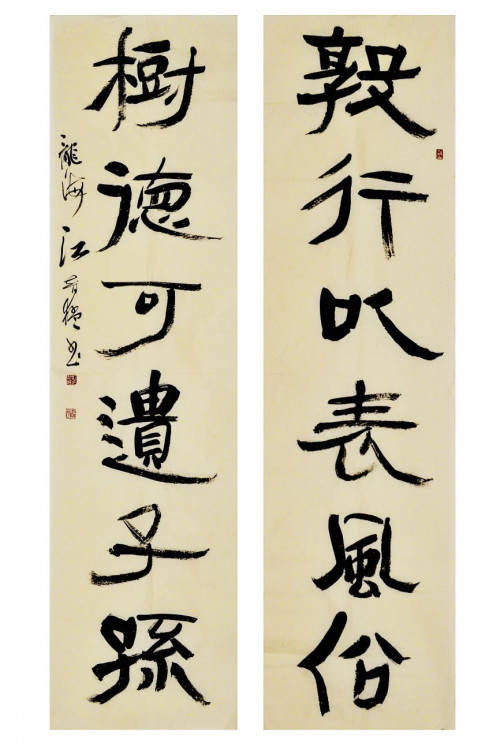 敦行以表風俗
樹德可遺子孫
龍海江